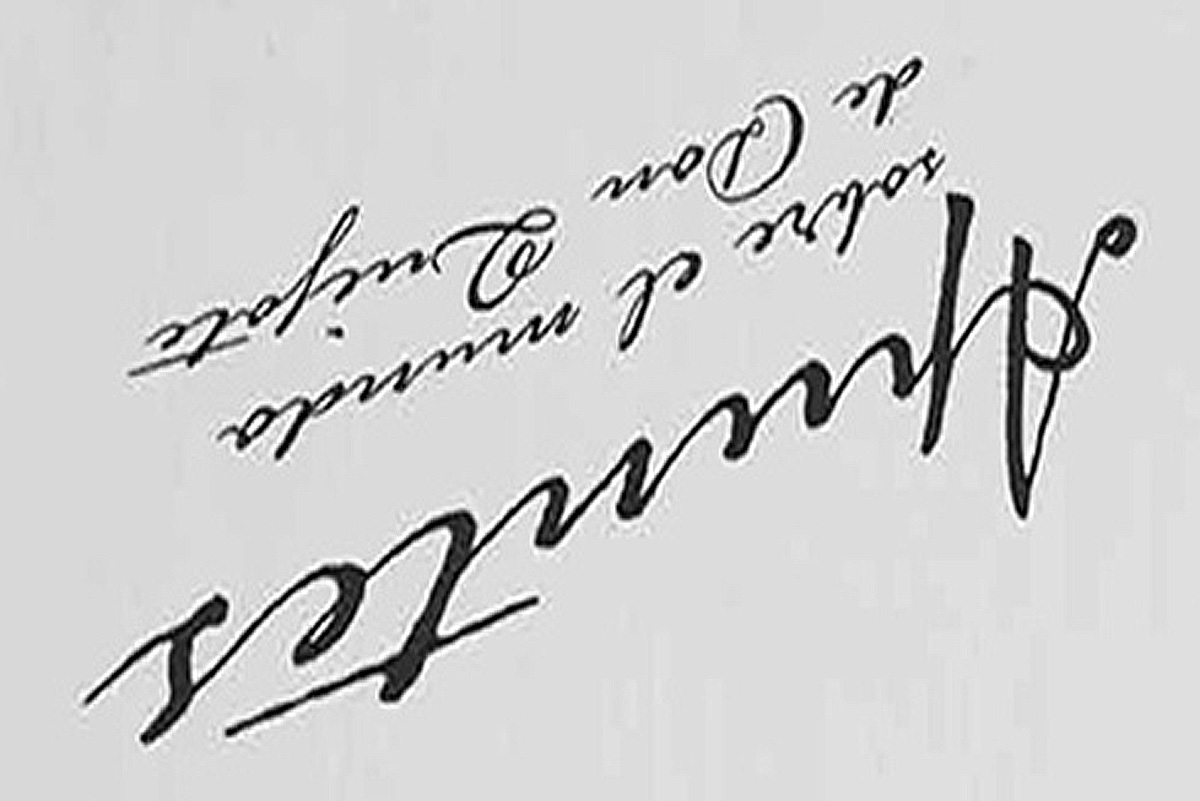 Apuntes
sobre el mundo
de Don Quijote